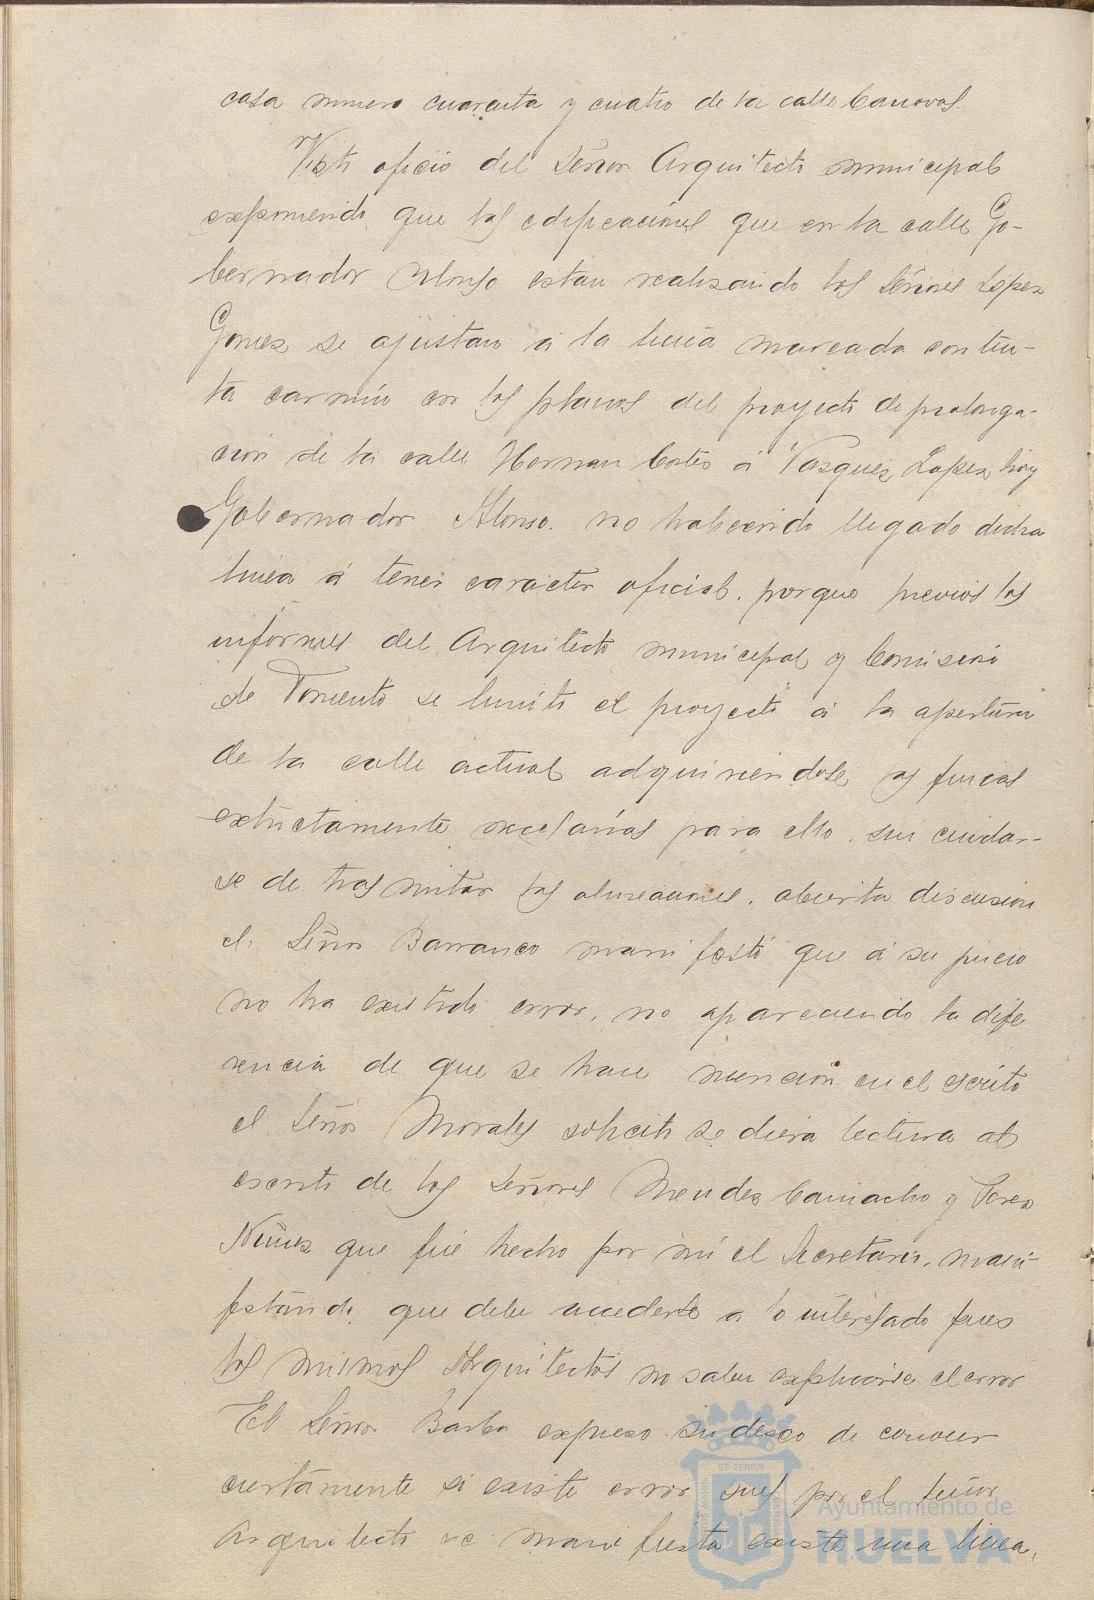 casa numero cuarenta y cuatro de la calle Canovas.
Visto oficio del Señor Arquitecto municipal
exponiendo que las edificaciones que en la calle Go-
bernador Alonso estan realizando los Señores Lopez
Gomez se ajustan á la linea marcada con tin-
ta carmin en los planos del proyecto de prolonga-
cion de la calle Hernan Cortés á Vazquez Lopez, hoy
Gobernador Alonso. no habiendo llegado dicha
linea á tener caracter oficial, porque previos los
informes del Arquitecto municipal y Comision
de Fomento se limitó el proyecto á la apertura
de la calle actual adquiriendose las fincas
extrictamente necesarias para ello, sin cuidar-
se de trasmitar las alineaciones. abierta discusion
el Señor Barranco manifestó que á su juicio
no ha existido error, no apareciendo la dife
rencia de que se hace mencion en el escrito
el Señor Morales solicitó se diera lectura al
escrito de los Señores Mendez Camacho y Perez
Nuñez que fué hecho por mí el Secretario, mani-
festando que debe accederse a lo interesado pues
los mismos Arquitectos no saben explicarse el error
El Señor Barba expuso su deseo de conocer
ciertamente si existe error pues por el Señor
Arquitecto se manifiesta existe una linea,
ET TERRÆ
Ayuntamiento de
HUELVA